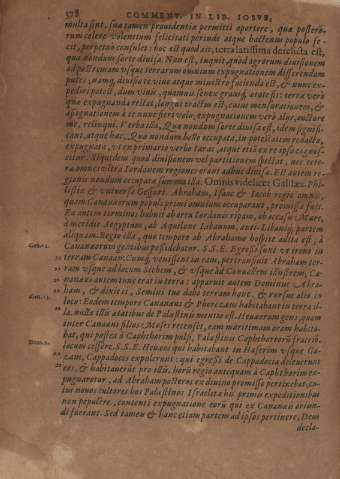 578 COMMENT. IN LIB. IOSVE,
multa sint, sua tamen providentia permitti aperteq́ue, quæ posterorum
rum celere volentium felicitati perinde atque hactenus populo fecit,
cit, perpetuò consules: hoc est quod ait, terra latissima derelicta est,
quæ nondum sorte divisa. Non est, inquit, quòd agrorum divisionem
ad postremam usque terrarum omnium expugnationem differendam
putes: namq́;, divisa te vivo atque ministro facienda est, & nunc
pedirì potest, dum vivis, quamvis senex
que expugnanda restat, longus tractus est, cuius mensurationem, &
assignationem à te nunc fieri volo, expugnationem verò aliis, auctore
me, relinqui. Verba illa, Quæ nondum sorte divisa est, idem significant,
cant, atque hæc, Quæ nondum belle occupata, in potestatem redacta,
expugnata, ut ex primario verbo atque etiam re ipsa cognoscitur.
scitur. Siquidem quod divisionem vel partitionem spectat, nec terræ
ræ omnes ultra Iordanem regiones erant adhuc divisæ. Est autem regionis
gionis nondum occupatæ summa illa: Omnis videlicet Galilæa, Philistiim
listiim & universa Gessuri. Abraham, Isaac & Iacob regio omnis,
quam Cananæorum populi primi omnium occuparant, promissa fuit.
Ea autem terminos habuit ab ortu Iordanis ripam, ab occasu Mare,
à meridie Aegyptum, ab Aquilone Libanum, anti-Libanū, partem
aliquam. Regio illa, quo tempore ab Abrahamo hospite adita est, à
Cananæorum gentibus possidebatur. S.S.E. Egressi sunt ut irent in
Gen. 12. terram Canaan: Cumq́, venissent in eam, pertransivit Abraham terram
ram usque ad locum Sichem, & usque ad Convallem illustrem, Cananæus
nanæus autem tunc erat in terra: apparuit autem Dominus Abraham,
ham, & dixit ei, Semini tuo dabo terram hanc. & rursus alio in
Gen. 13. loco: Eodem tempore Cananæus & Pherezæus habitabant in terra illa.
la. nulla illis ætatibus de Palæstinis mentio est. Hevæorum gens quam
inter Canaan filios Moses recenset, eam maritimam oram habitabat,
bat, qui postea à Caphthorim pulsi, Palæstinis Caphthoreorū fratrib.
Deut. 2. locum cessere. S.S.E. Hevæos qui habitabant in Haserim usque Gazam,
zam, Cappadoces expulerunt: qui egressi de Cappadocia deleverunt
eos, & habitaverūt pro illis. horū regio antequam à Caphthorim expugnaretur,
pugnaretur, ad Abraham posteros ex divino promisso pertinebat, cuius
ius novos cultores hos Palæstinos Israelitæ his primis expeditionibus
non pepulere, contenti expugnatione eorū qui ex Cananæis oriundi
di fuerant. Sed tamen & hanc etiam partem ad ipsos pertinere, Deus
decla-